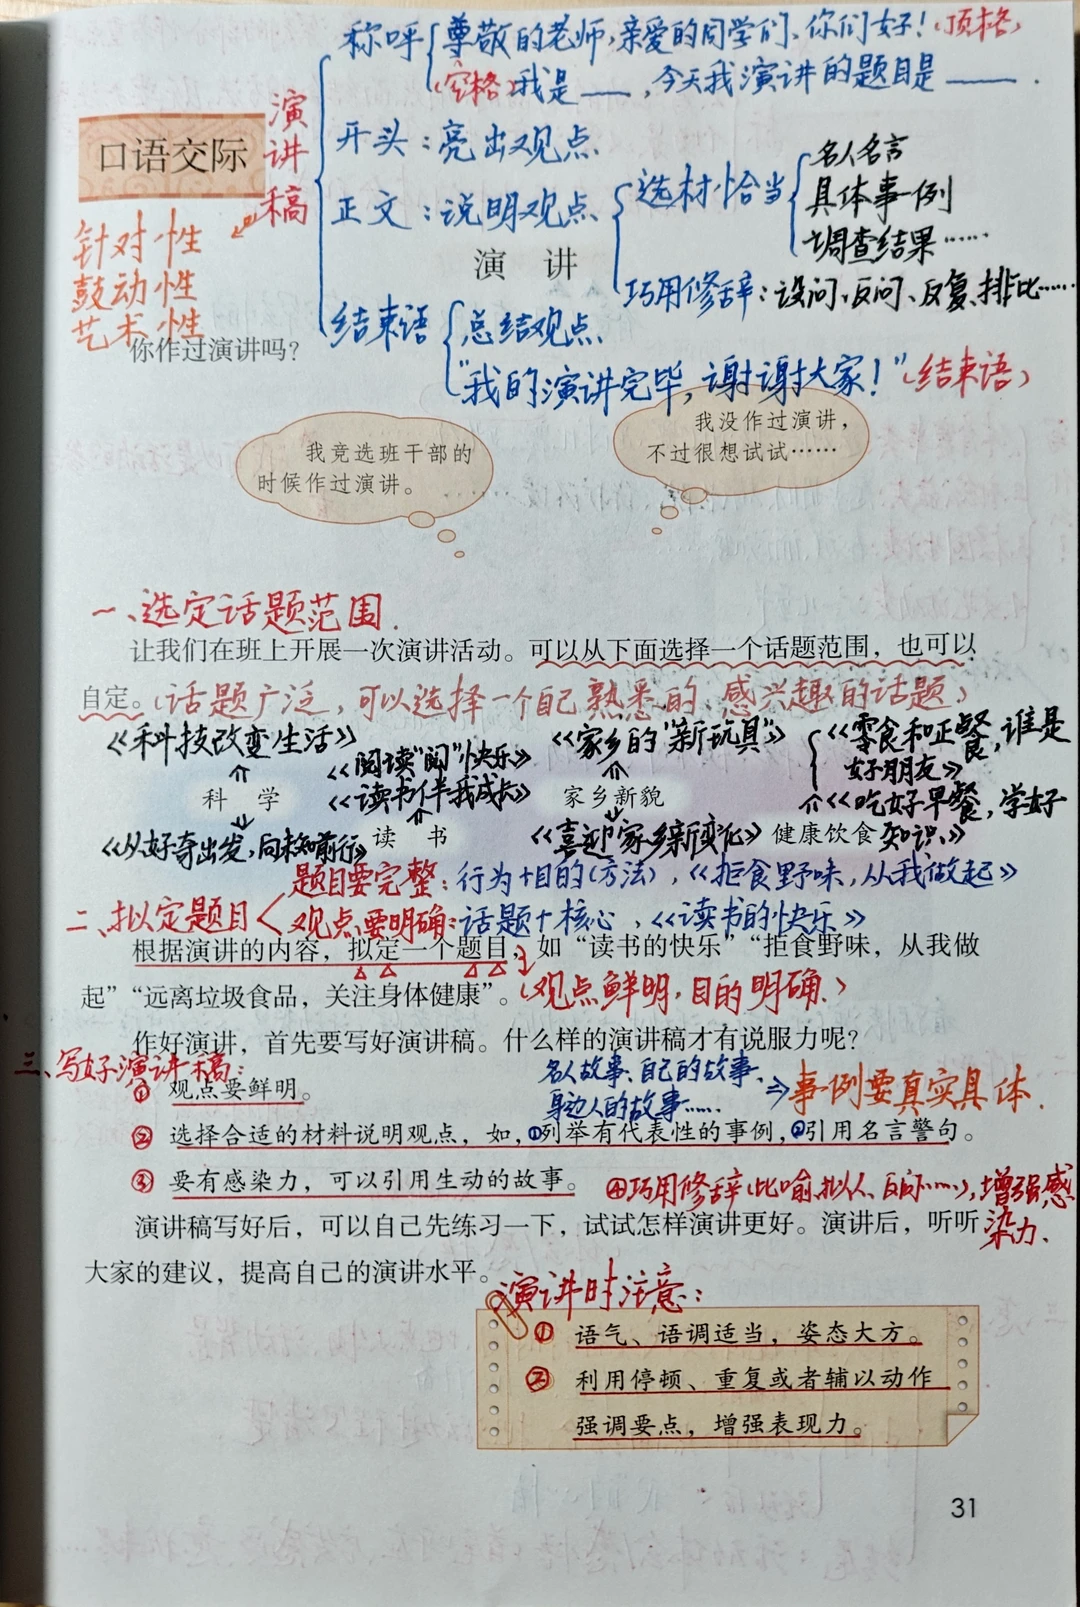 称呼{尊敬的老师,亲爱的同学们、你们好!(顶格)
(空格)我是___,今天我演讲的题目是____.
演讲稿
开头:亮出观点
正文:说明观点{选材恰当{名人名言
具体事例
调查结果……
巧用修辞:设问、反问、反复、排比……
结束语{总结观点
"我的演讲完毕,谢谢大家!"(结束语)
口语交际
针对性
鼓动性
艺术性
演 讲
你作过演讲吗?
我竞选班干部的
时候作过演讲。
我没作过演讲,
不过很想试试……
一、选定话题范围.
让我们在班上开展一次演讲活动。可以从下面选择一个话题范围,也可以
自定。(话题广泛,可以选择一个自己熟悉的、感兴趣的话题)
《科技改变生活》
《阅读"阅"快乐》
《读书伴我成长》
《家乡的"新玩具"》
《零食和正餐,谁是
好朋友》
《吃好早餐,学好
知识》
科 学
读 书
家乡新貌
健康饮食
《从好奇出发,向未知前行》
《喜迎家乡新变化》
二、拟定题目<题目要完整:行为+目的(方法),《拒食野味,从我做起》
观点要明确:话题+核心,《读书的快乐》
根据演讲的内容,拟定一个题目,如“读书的快乐”“拒食野味,从我做
起”“远离垃圾食品,关注身体健康”。(观点鲜明,目的明确.)
作好演讲,首先要写好演讲稿。什么样的演讲稿才有说服力呢?
三、写好演讲稿:
① 观点要鲜明。
名人故事、自己的故事、
身边人的故事……⇒事例要真实具体.
② 选择合适的材料说明观点,如,①列举有代表性的事例,②引用名言警句。
③ 要有感染力,可以引用生动的故事。 ④巧用修辞(比喻、拟人、反问……),增强感
染力.
演讲稿写好后,可以自己先练习一下,试试怎样演讲更好。演讲后,听听
大家的建议,提高自己的演讲水平。
演讲时注意:
① 语气、语调适当,姿态大方。
② 利用停顿、重复或者辅以动作
强调要点,增强表现力。
31